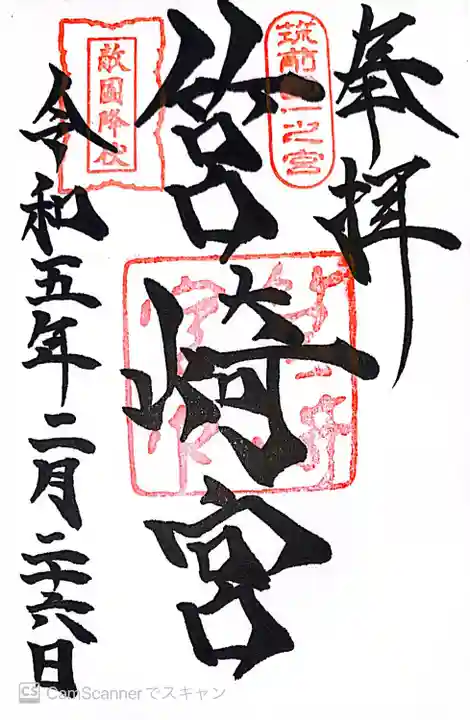 奉拝
筑前國一之宮
筥崎宮
敵国降伏
令和五年二月二十六日
CS CamScannerでスキャン